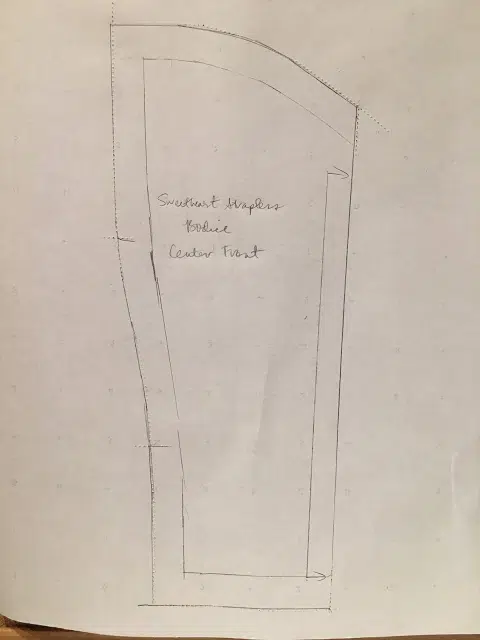 Sweetheart Strapless
Bodice
Center Front